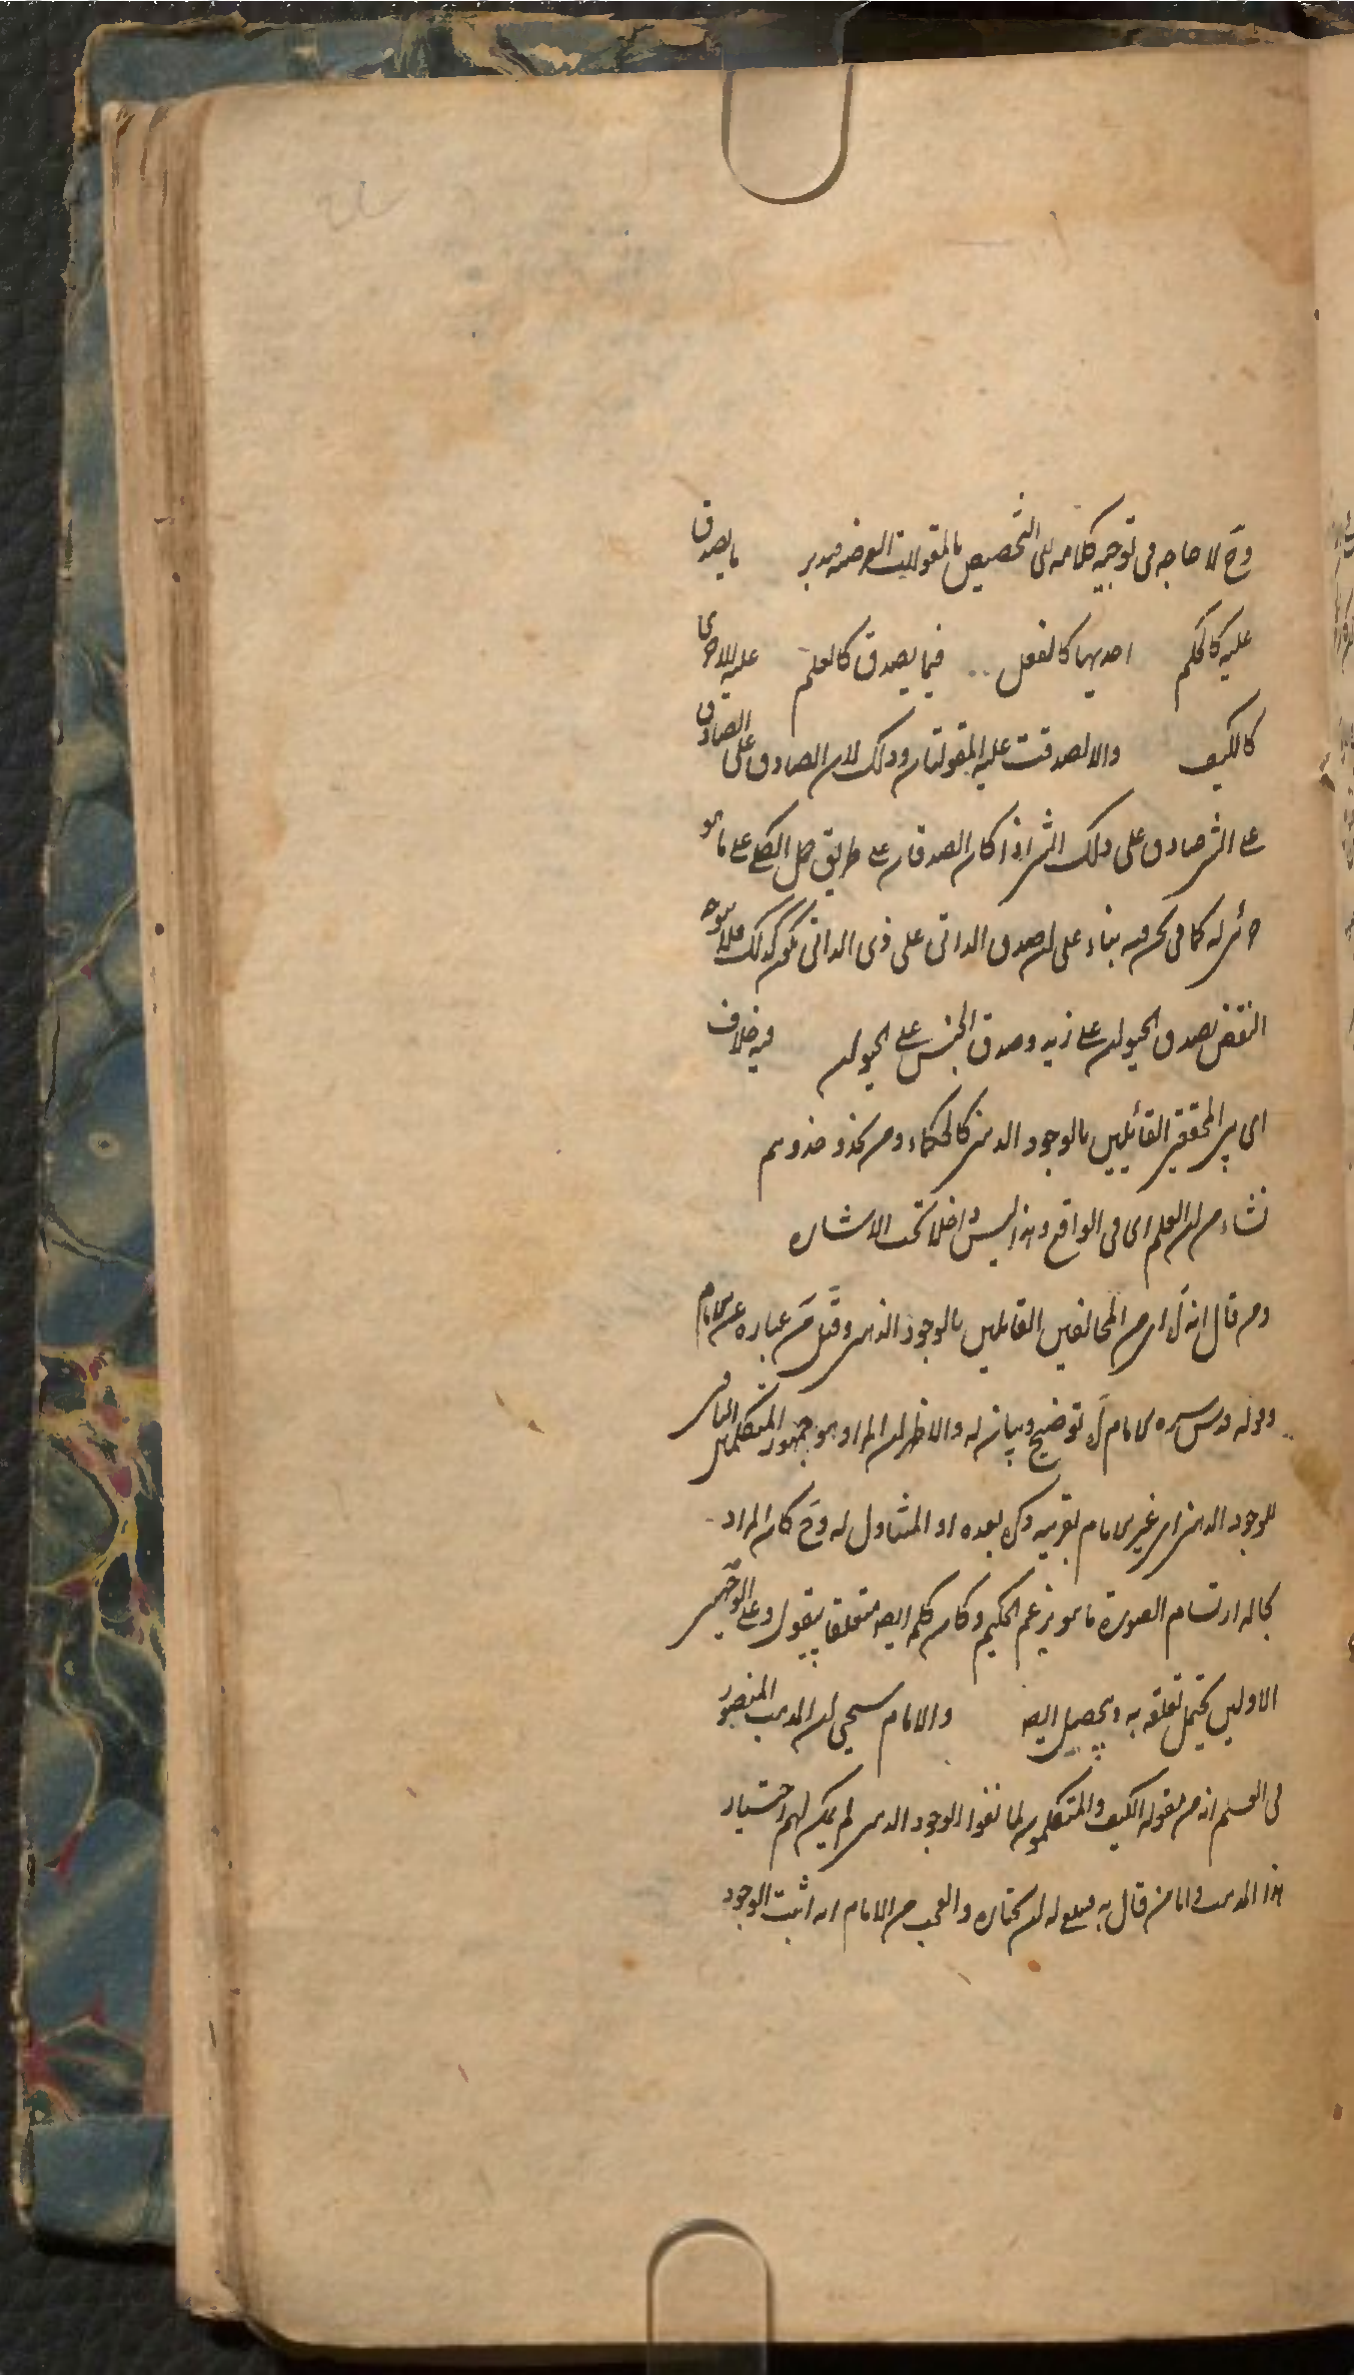 وح لا حاجه فى توجيه كلامه الى التخصيص بالمقولات العرضيه فتدبر ما يصدق
عليه كالحكم احديهما كالفعل فيما يصدق كالعلم عليه الاخرى
كالكيف والا لصدقت عليه المقولتان وذلك لان الصادق على الصادق
على الشى صادق على ذلك الشى اذا كان الصدقان على طريق حمل الكلى على ما هو
جزئى له كما فى نحن فيه بناء على ان صدق الذاتى على ذى الذاتى يكون كذلك فلا يتوجه
النقض بصدق الحيوان على زيد وصدق الجنس على الحيوان فيه خلاف
اى بين المحققين القائلين بالوجود الذهنى كالحكماء ومن يحذو حذوهم
نشاء من ان العلم اى فى الواقع وهذا ليس داخلا تحت الاشاره
ومن قال انه اى من المخالفين القائلين بالوجود الذهنى وقيل عباره عن الامام
وقوله قدس سره الامام توضيح وبيان له والاظهر ان المراد هو جمهور المتكلمين النافى
للوجود الذهنى اى غير الامام بقرينه ذكره بعده او المتناول له وح كان المراد
بحاله ارتسام الصورة ما هو بزعم الحكيم وكان كلمه ايضه متعلقا بيقول وعلى الوجهين
الاولين يحتمل تعلقه به وبحصيل ايضه والامام سيجى ان المذهب المنصور
فى العلم انه من مقوله الكيف والمتكلمون لما نفوا الوجود الذهنى لم يمكن لهم اختيار
هذا المذهب واما من قال به فله ان يختاره والعجب من الامام انه اثبت الوجود